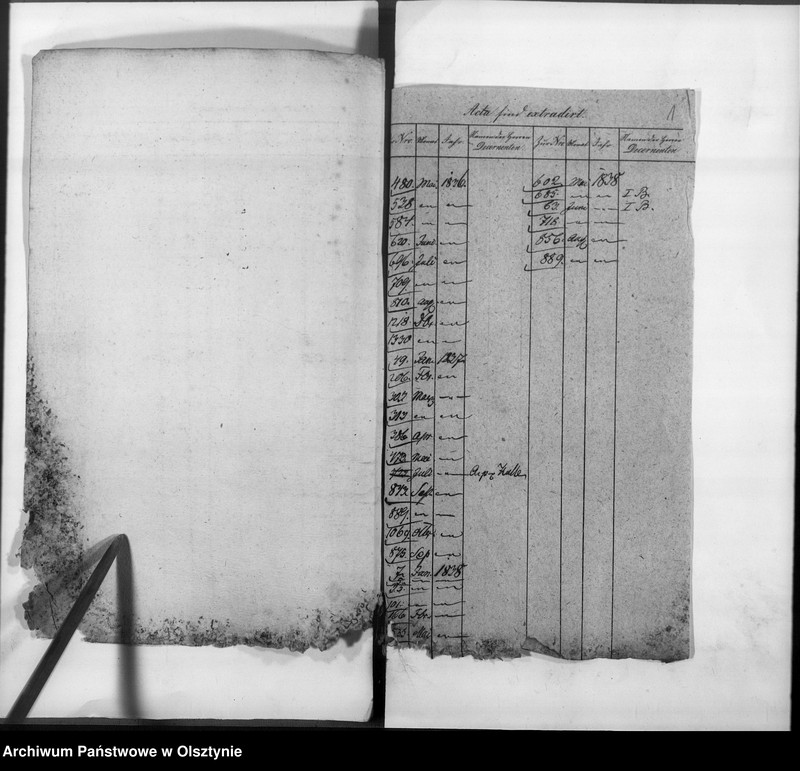 1
Acta sind extradirt.
Nro Monat Jahr Namen der Herren Decernenten Zur Nro Monat Jahr Namen der Herren Decernenten
480. Mai 1836. 602. Mai 1838
538. " " 685. " " I B.
587. " " 63. Juni " I B.
620. Juni " 718. " "
696. Juli " 856. Aug "
769. " " 889. " "
810. Aug "
1218. "
1330 " "
49. Jan. 1837.
206. Febr. "
302. März "
313 " "
386 Apr. "
473 Mai "
Juli "
873. Sept. "
889. " "
1069. "
573. Sep "
7. Jan. 1838
35. " "
101. " "
166 Febr. "
Archiwum Państwowe w Olsztynie